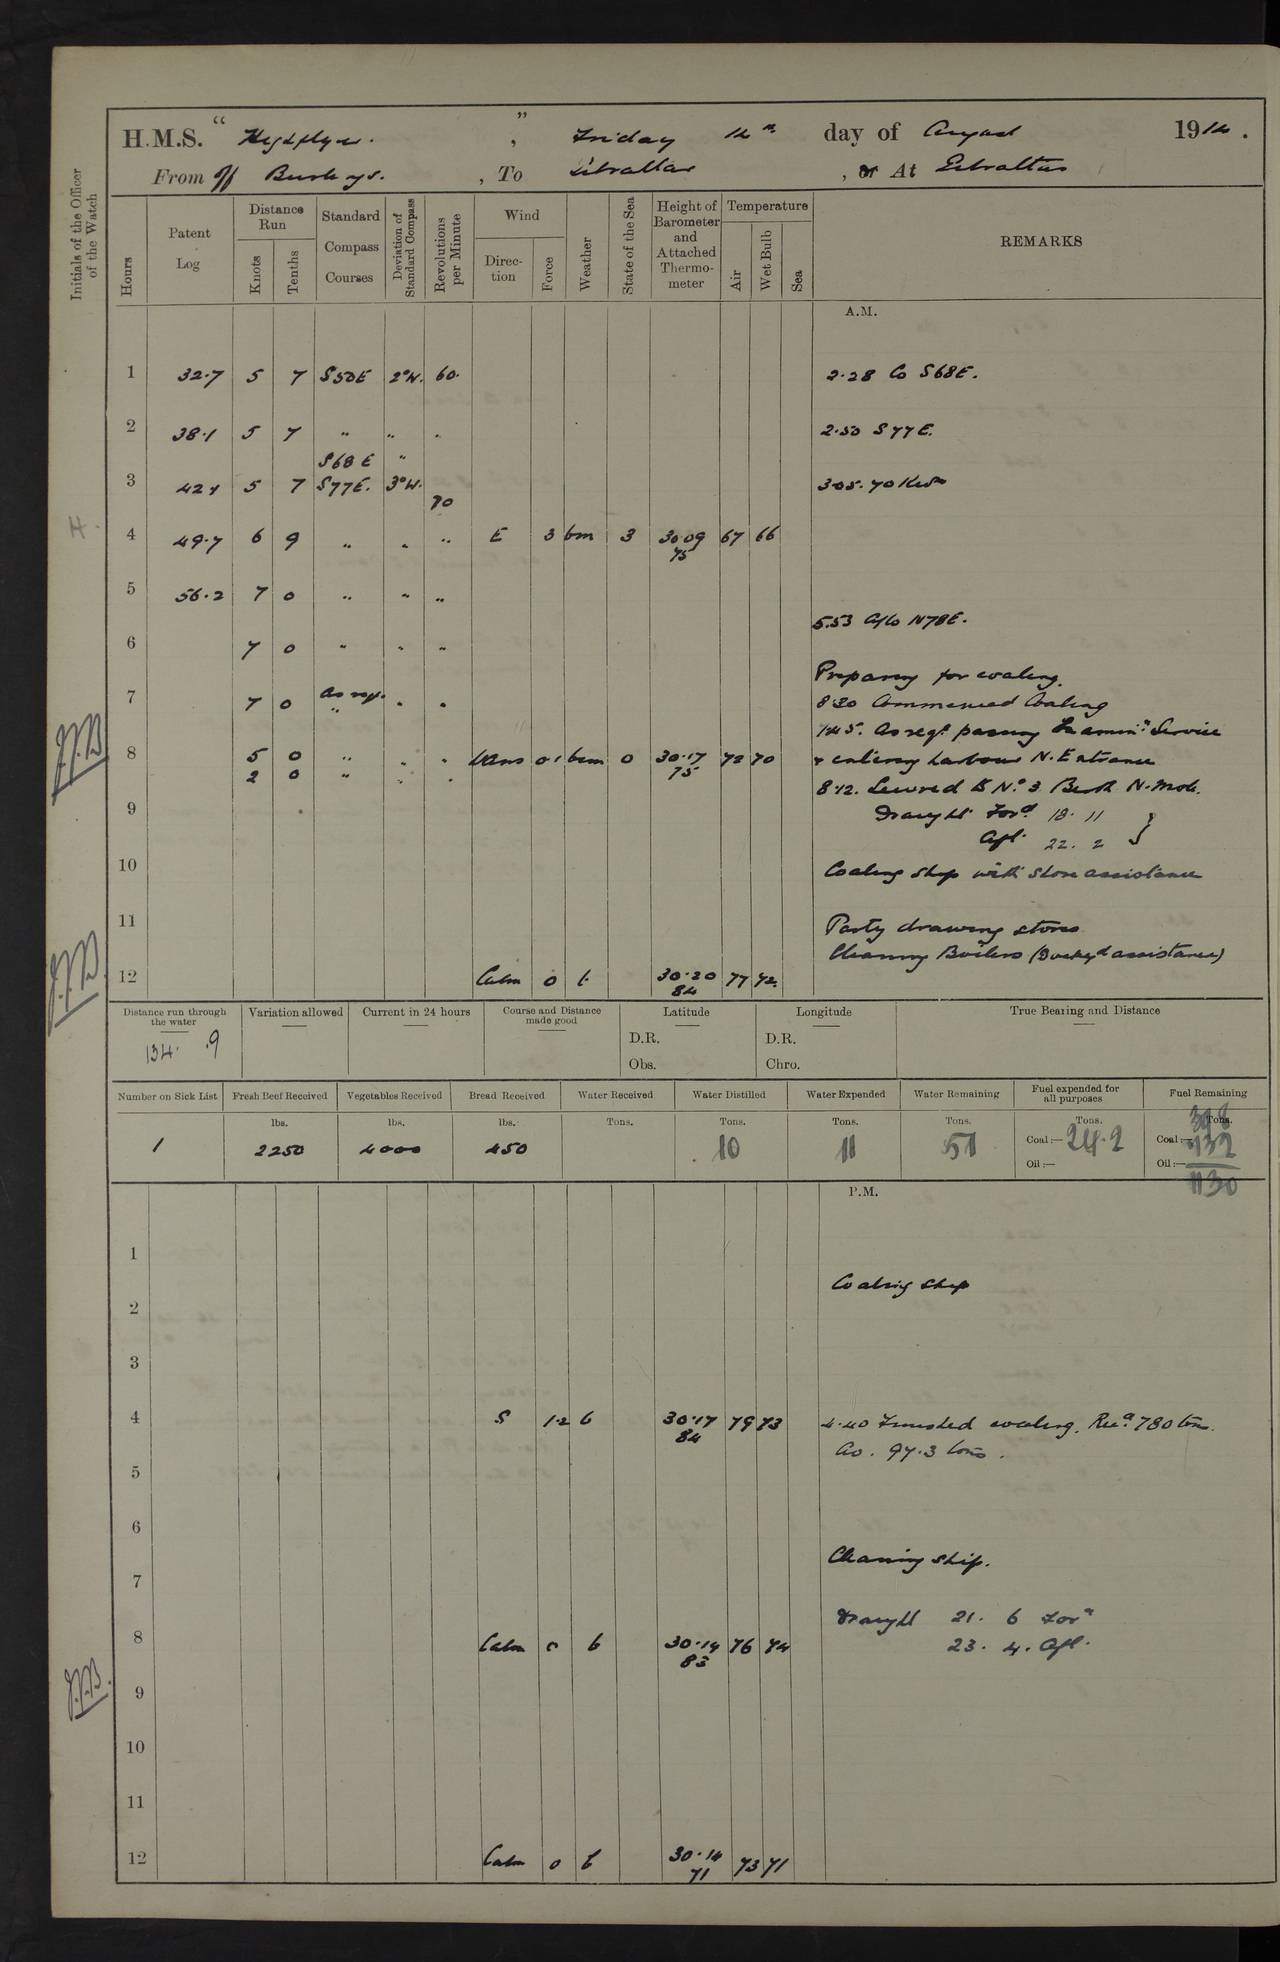 H.M.S. "Highflyer." , Friday 14th day of August 1914.
From Off Burlings. , To Gibraltar , or At Gibraltar
Initials of the Officer of the Watch
Hours Patent Log Distance Run Knots Tenths Standard Compass Courses Deviation of Standard Compass Revolutions per Minute Wind Direction Force Weather State of the Sea Height of Barometer and Attached Thermometer Temperature Air Wet Bulb Sea REMARKS
A.M.
1 32.7 5 7 S50E 2°W. 60. 2.28 Co S68E.
2 38.1 5 7 " " " 2.50 S77E.
S68E "
3 5 7 S77E. 3°W. 3.05. 70 Revs
70
H.
4 49.7 6 9 " " " E 3 bm 3 30.09 67 66
75
5 56.2 7 0 " " "
5.53 A/Co N78E.
6 7 0 " " "
Preparing for coaling.
7 7 0 As req. " "
" 8.30 Commenced Coaling
7.45. As reqt. passing Examinn. Service
J.J.B
8 5 0 " " " Vars 0.1 bcm 0 30.17 72 70 & entering harbour N. Entrance
2 0 " " " 75
8.12. Secured to No. 3 Berth N. Mole.
9 Draught Ford. 18. 11 }
Aft. 22. 2
10 Coaling ship with shore assistance
11 Party drawing stores
Cleaning Boilers (Dockyd assistance)
J.J.B.
12 Calm 0 b 30.20 77 72.
84
Distance run through the water Variation allowed Current in 24 hours Course and Distance made good Latitude Longitude True Bearing and Distance
134. .9 D.R. D.R.
Obs. Chro.
Number on Sick List Fresh Beef Received Vegetables Received Bread Received Water Received Water Distilled Water Expended Water Remaining Fuel expended for all purposes Fuel Remaining
lbs. lbs. lbs. Tons. Tons. Tons. Tons. Tons. Tons.
1 2250 4000 450 10 11 51 Coal:— 24.2 Coal:—
Oil:— Oil:—
1130
P.M.
1
Coaling ship
2
3
4 S 1.2 b 30.17 79 73 4.40 Finished coaling. Recd. 780 tons.
84
Av. 97.3 tons.
5
6
Cleaning ship.
7
Draught 21. 6 Ford
8 Calm 0 b 30.14 76 74 23. 4. Aft.
83
J.J.B.
9
10
11
12 Calm 0 b 30.14 73 71
71